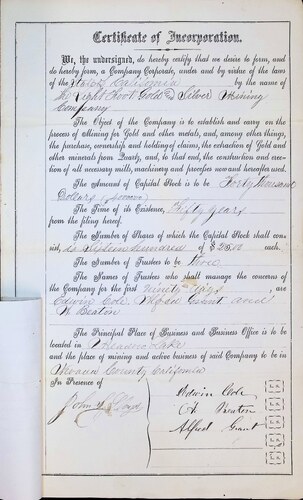 Certificate of Incorporation.
We, the undersigned, do hereby certify that we desire to form, and
do hereby form, a Company Corporate, under and by virtue of the laws
of the State of California by the name of
The Light Foot Gold & Silver Mining
Company
The Object of the Company is to establish and carry on the
process of Mining for Gold and other metals, and, among other things,
the purchase, ownership and holding of claims, the extraction of Gold and
other minerals from Quartz, and, to that end, the construction and erec-
tion of all necessary mills, machinery and processes now and hereafter used.
The Amount of Capital Stock is to be Forty thousand
Dollars
The Time of its Existence, Fifty years
from the filing hereof.
The Number of Shares of which the Capital Stock shall con-
sist, is Sixteen hundred of $25.00 each.
The Number of Trustees to be three
The Names of Trustees who shall manage the concerns of
the Company for the first ninety Days, are
Edwin Cole, Alfred Grant and
Beaton
The Principal Place of Business and Business Office is to be
located in Meadow Lake
and the place of mining and active business of said Company to be in
Nevada County California
In Presence of
John Lloyd
Edwin Cole
A Beaton
Alfred Grant